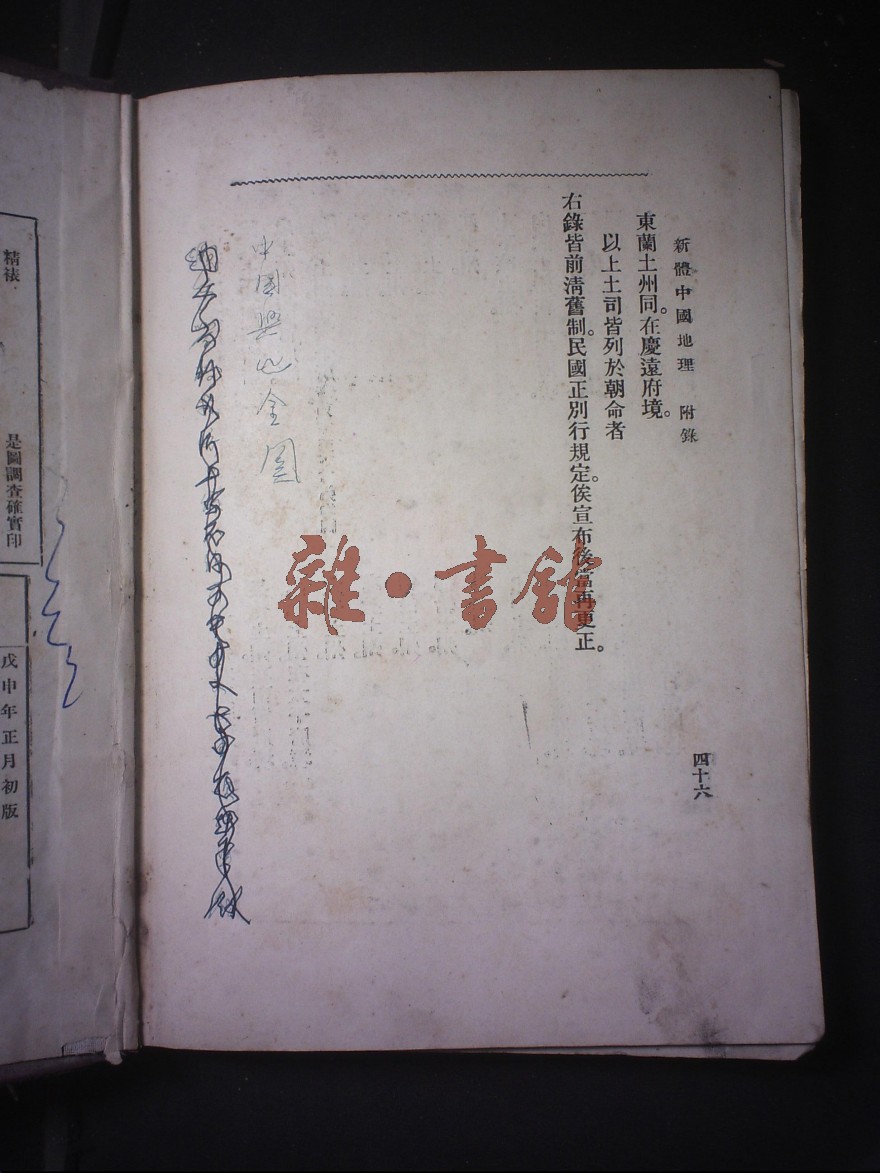 新體中國地理 附錄
四十六
東蘭土州同。在慶遠府境。
以上土司皆列於朝命者
右錄皆前清舊制。民國正別行規定。俟宣布後當再更正。
中国與地全图
雜·書館
精裱
是圖調查確實印
戊申年正月初版